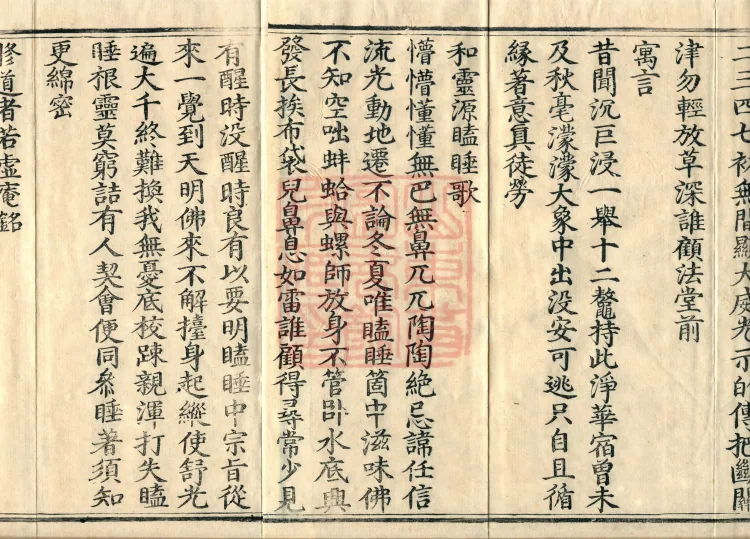 二三四七初無間顯大威光示的傳把斷關
津勿輕放草深誰顧法堂前
寓言
昔聞沉巨浸一舉十二鼇持此淨華宿曾未
及秋毫濛濛大象中出没安可逃只自且循
緣著意真徒勞
和靈源瞌睡歌
懵懵懂懂無巴無鼻兀兀陶陶絶忌諱任信
流光動地遷不論冬夏唯瞌睡箇中滋味佛
不知空咄蚌蛤與螺師放身不管卧水底典
發長挨布袋兒鼻息如雷誰顧得尋常少見
有醒時没醒時良有以要明瞌睡中宗旨從
來一覺到天明佛來不解擡身起縱使舒光
遍大千終難換我無憂底校踈親渾打失瞌
睡根靈莫窮詰有人契會便同叅睡著須知
更綿密
脩道者若虛庵銘